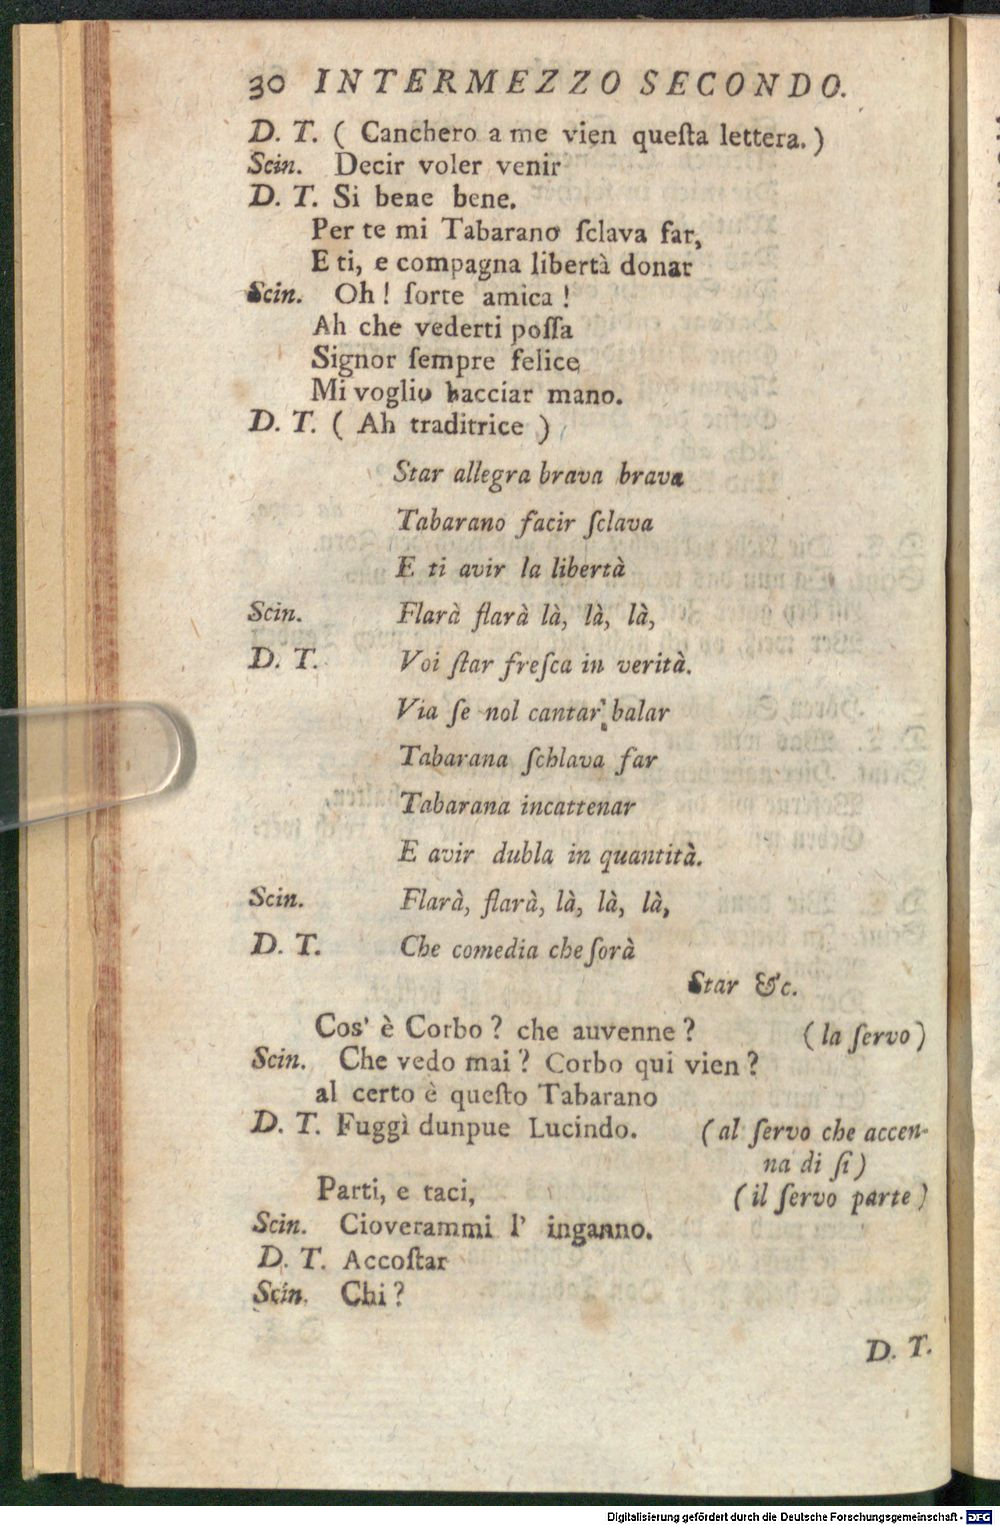 30 INTERMEZZO SECONDO.
D. T. ( Canchero a me vien queſta lettera. )
Scin. Decir voler venir
D. T. Si bene bene.
Per te mi Tabarano ſclava far,
E ti, e compagna libertà donar
Scin. Oh ! ſorte amica !
Ah che vederti poſſa
Signor ſempre felice
Mi voglio bacciar mano.
D. T. ( Ah traditrice )
Star allegra brava brava
Tabarano facir ſclava
E ti avir la libertà
Scin. Flarà flarà là, là, là,
D. T. Voi ſtar freſca in verità.
Via ſe nol cantar balar
Tabarana ſchlava far
Tabarana incattenar
E avir dubla in quantità.
Scin. Flarà, flarà, là, là, là,
D. T. Che comedia che ſorà
Star &c.
Cos' è Corbo ? che auvenne ? ( la ſervo )
Scin. Che vedo mai ? Corbo qui vien ?
al certo è queſto Tabarano
D. T. Fuggì dunpue Lucindo. ( al ſervo che accen-
na di ſi )
Parti, e taci, ( il ſervo parte )
Scin. Cioverammi l' inganno.
D. T. Accoſtar
Scin. Chi ?
D. T.
Digitalisierung gefördert durch die Deutsche Forschungsgemeinschaft - DFG